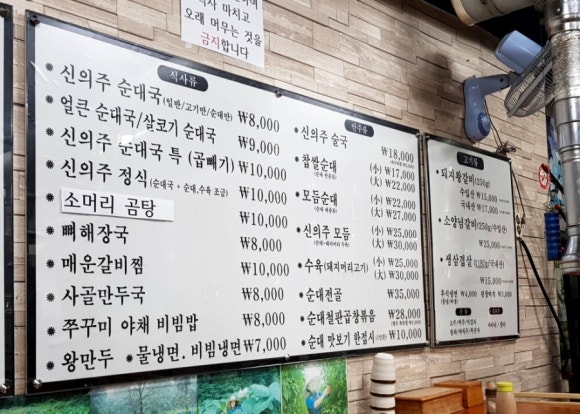 식사 마치고
오래 머무는 것을
금지합니다
식사류
신의주 순대국 (일반/고기만/순대만) ₩8,000
얼큰 순대국/살코기 순대국 ₩9,000
신의주 순대국 특 (곱빼기) ₩10,000
신의주 정식 (순대국 + 순대,수육 조금) ₩10,000
소머리 곰탕 ₩10,000
뼈해장국 ₩8,000
매운갈비찜 ₩10,000
사골만두국 ₩8,000
쭈꾸미 야채 비빔밥 ₩8,000
왕만두 * 물냉면, 비빔냉면 ₩7,000
안주류
신의주 술국 ₩18,000
찹쌀순대 (小) ₩17,000
(大) ₩22,000
모듬순대 (小) ₩17,000
(大) ₩22,000
신의주 모듬 (小) ₩25,000
(大) ₩30,000
수육(돼지머리고기) (小) ₩25,000
(大) ₩30,000
순대전골 ₩35,000
순대철판곱창볶음 ₩28,000
순대 맛보기 한접시 ₩10,000
고기류
돼지왕갈비(250g)
수입산 ₩15,000
국내산 ₩17,000
소양념갈비(250g/수입산)
₩25,000
생삼겹살 (180g/국내산)
₩15,000